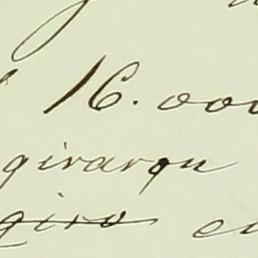 16.000
girarqu
giro en